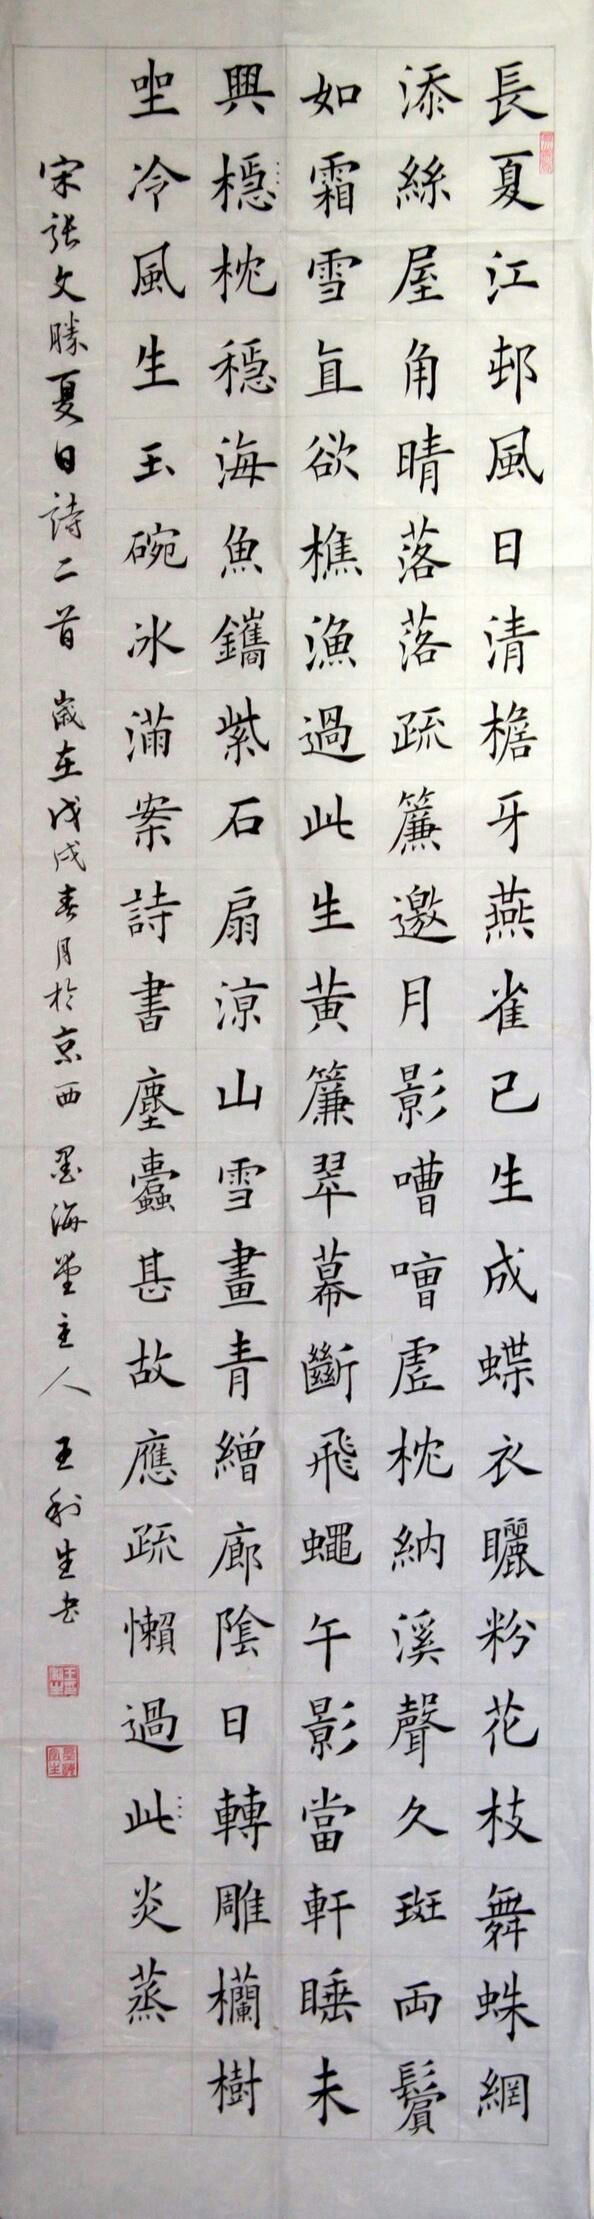 長夏江邨風日清檐牙燕雀已生成蝶衣曬粉花枝舞蛛網
添絲屋角晴落落疏簾邀月影嘈嘈虛枕納溪聲久斑兩鬢
如霜雪直欲樵漁過此生黃簾翠幕斷飛蠅午影當軒睡未
興檼枕穩海魚鐫紫石扇涼山雪畫青繒廊陰日轉雕欄樹
坐冷風生玉碗冰滿案詩書塵蠹甚故應疏懶過此炎蒸
宋張文勝夏日詩二首 歲在戊戌春月於京西 墨海堂主人 王利生書